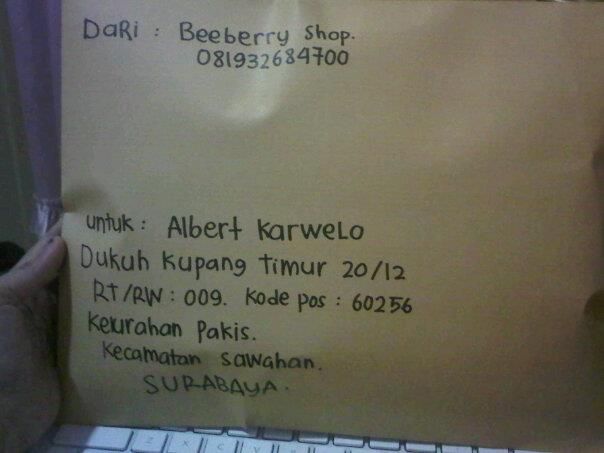 DaRi : Beeberry Shop.
081932684700
untuk : Albert Karwelo
Dukuh Kupang Timur 20/12
RT/RW : 009. Kode pos : 60256
Kelurahan Pakis.
Kecamatan Sawahan.
SURABAYA.
Z X C